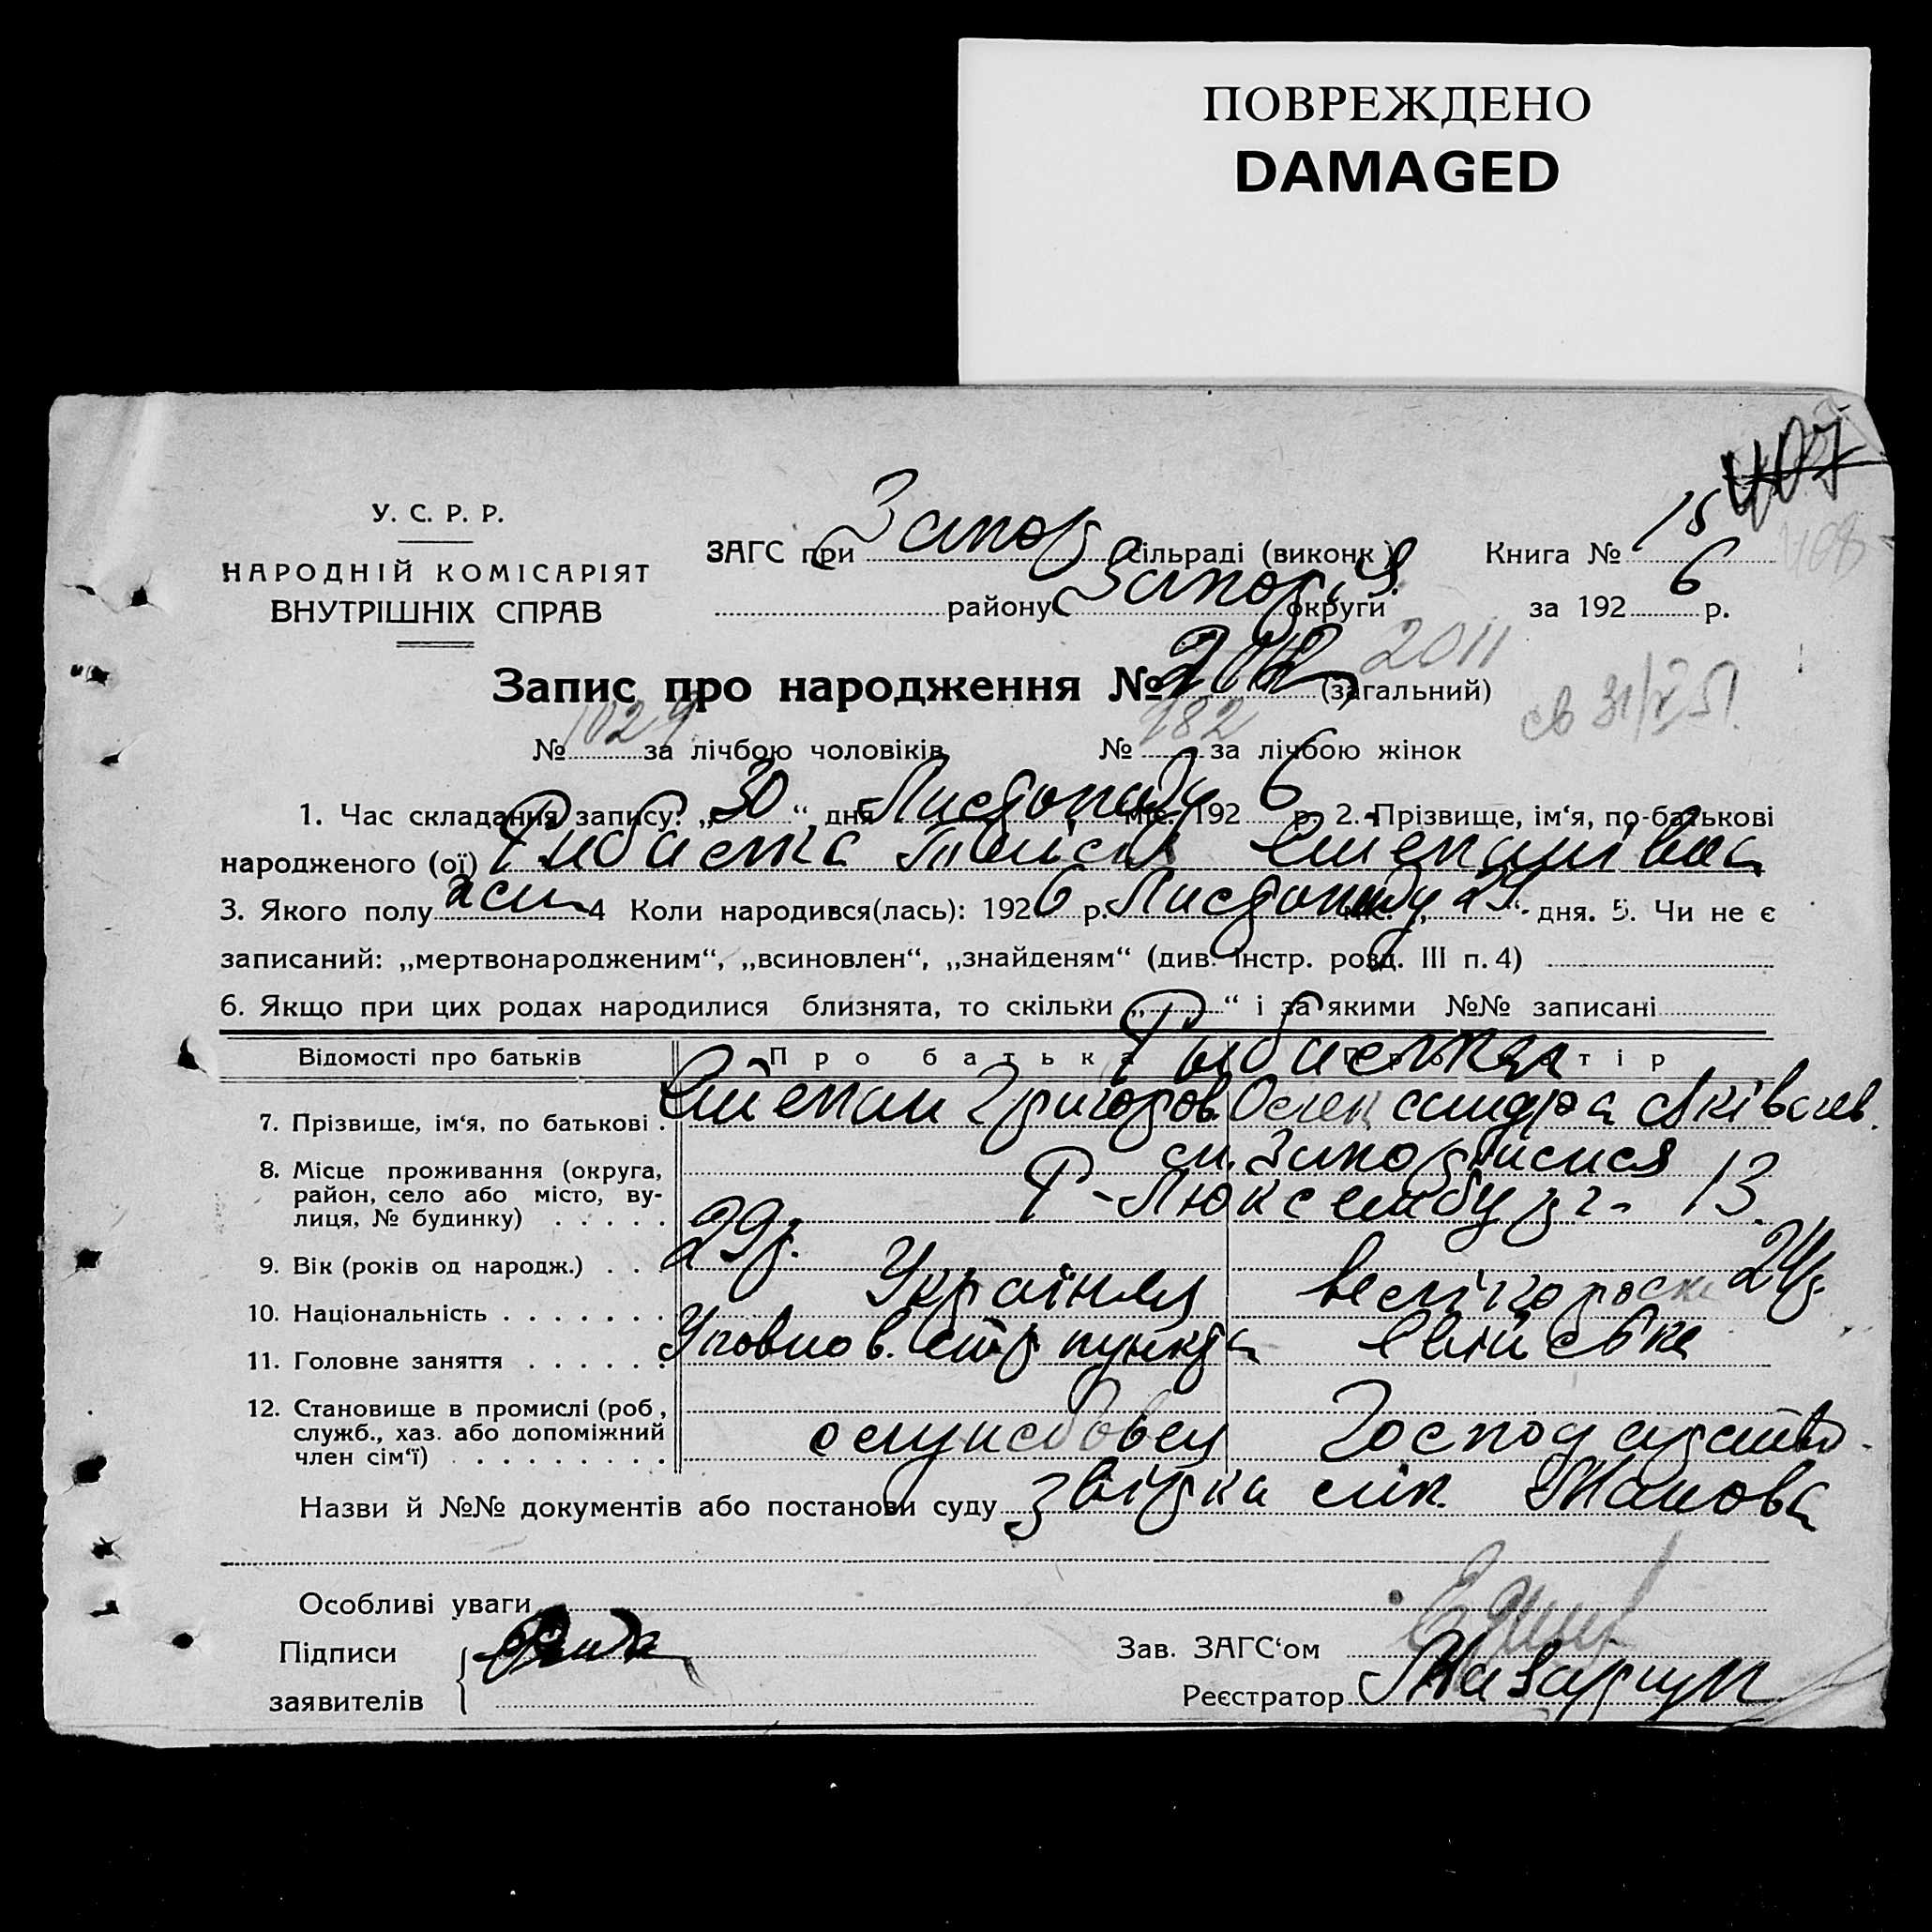 ПОВРЕЖДЕНО
DAMAGED
407
408
У. С. Р. Р.
НАРОДНІЙ КОМІСАРІЯТ
ВНУТРІШНІХ СПРАВ
ЗАГС при Запор сільраді (виконк.)
району Запоріз. округи
Книга № 15
за 1926 р.
Запис про народження № (загальний) 2011
№ 1029 за лічбою чоловіків № 982 за лічбою жінок
1. Час складання запису: „30“ дня Листопаду міс. 1926 р. 2. Прізвище, ім‘я, по-батькові
народженого (ої) Рибалка Таїса Степанівна
3. Якого полу жін 4 Коли народився(лась): 1926 р. Листопаду міс. „29“ дня. 5. Чи не є
записаний: „мертвонародженим“, „всиновлен“, „знайденям“ (див. інстр. розд. III п. 4)
6. Якщо при цих родах народилися близнята, то скільки „ “ і за якими №№ записані
Відомості про батьків Про батька Про матір
Рибалка
7. Прізвище, ім‘я, по батькові . Степан Григоров. Олександра Яківлев.
8. Місце проживання (округа, район, село або місто, вулиця, № будинку) . . . . . м. Запоріжжя
Р-Люксембург- 13
9. Вік (років од народж.) . . . 29 р. 24 р.
10. Національність . . . . . . . Українец велікороска
11. Головне заняття . . . . . . Уповнов. пункта
12. Становище в промислі (роб., служб., хаз. або допоміжний член сім‘ї) . . . . . . . . . службовец
Назви й №№ документів або постанови суду
Особливі уваги
Підписи
заявителів
Зав. ЗАГС‘ом
Реєстратор